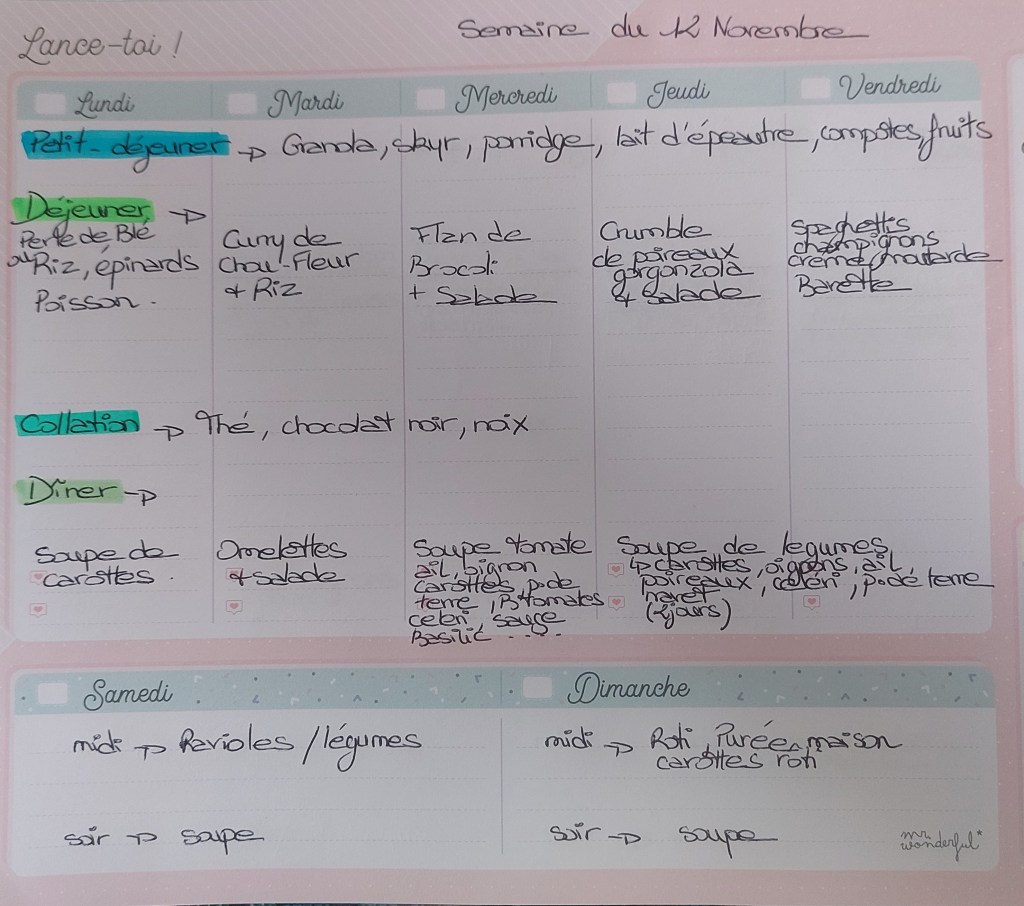 Lance-toi !
Semaine du 12 Novembre
Lundi
Mardi
Mercredi
Jeudi
Vendredi
Petit-déjeuner → Granola, skyr, porridge, lait d'épeautre, compotes, fruits
Déjeuner →
Perle de Blé
ou Riz, épinards
Poisson.
Curry de
Chou-Fleur
+ Riz
Flan de
Brocoli
+ Salade
Crumble
de poireaux
gorgonzola
+ Salade
Spaghettis
champignons
crème/moutarde
Collation → Thé, chocolat noir, noix
Dîner →
Soupe de
carottes.
Omelettes
+ salade
Soupe tomate
ail, oignon
carottes, p.de
terre, B.tomates
celeri, sauge
Basilic ...
Soupe de légumes
↳ carottes, oignons, ail,
poireaux, céleri, p.de terre
navet
(2 jours)
Samedi
midi → Ravioles / légumes
soir → soupe
Dimanche
midi → Roti, Purée maison
carottes roti
soir → soupe
mr. wonderful*